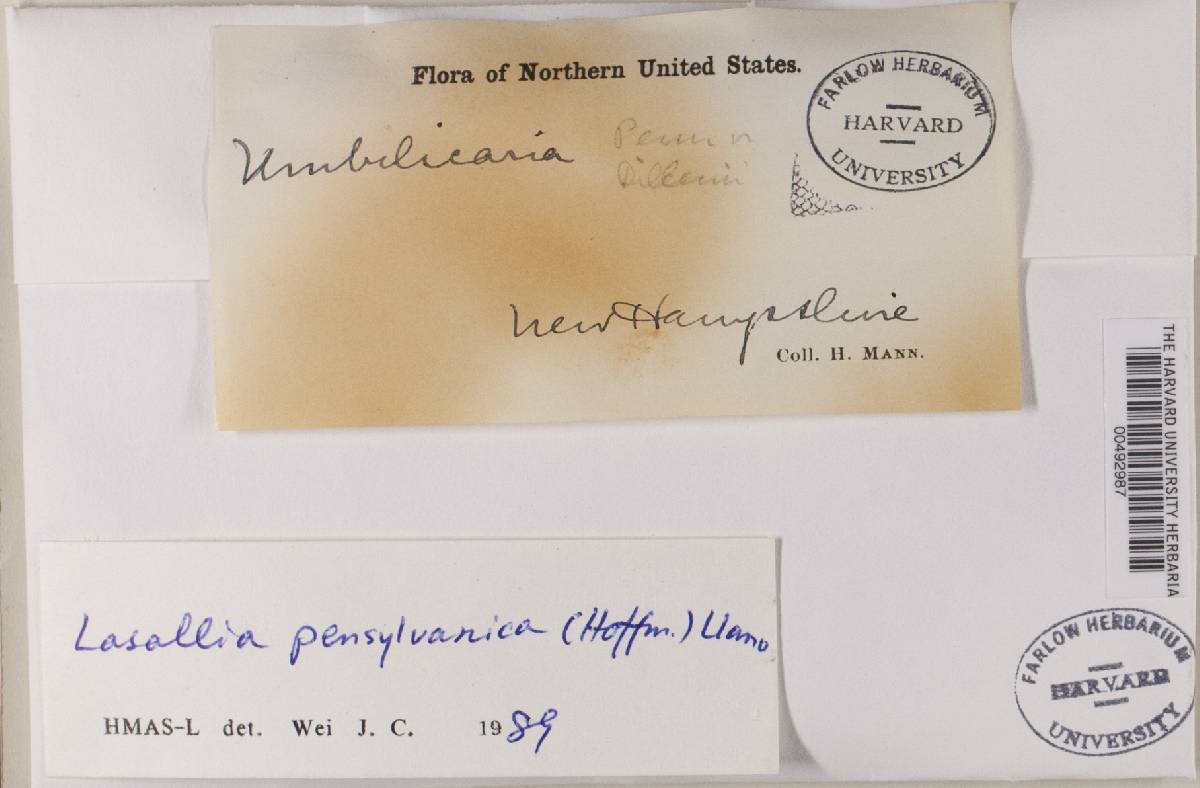 Flora of Northern United States.
FARLOW HERBARIUM
HARVARD
UNIVERSITY
Umbilicaria
Dillenii
New Hampshire
Coll. H. MANN.
THE HARVARD UNIVERSITY HERBARIA
00492987
Lasallia pensylvanica (Hoffm.) Llano
HMAS-L det. Wei J. C. 1989
FARLOW HERBARIUM
HARVARD
UNIVERSITY